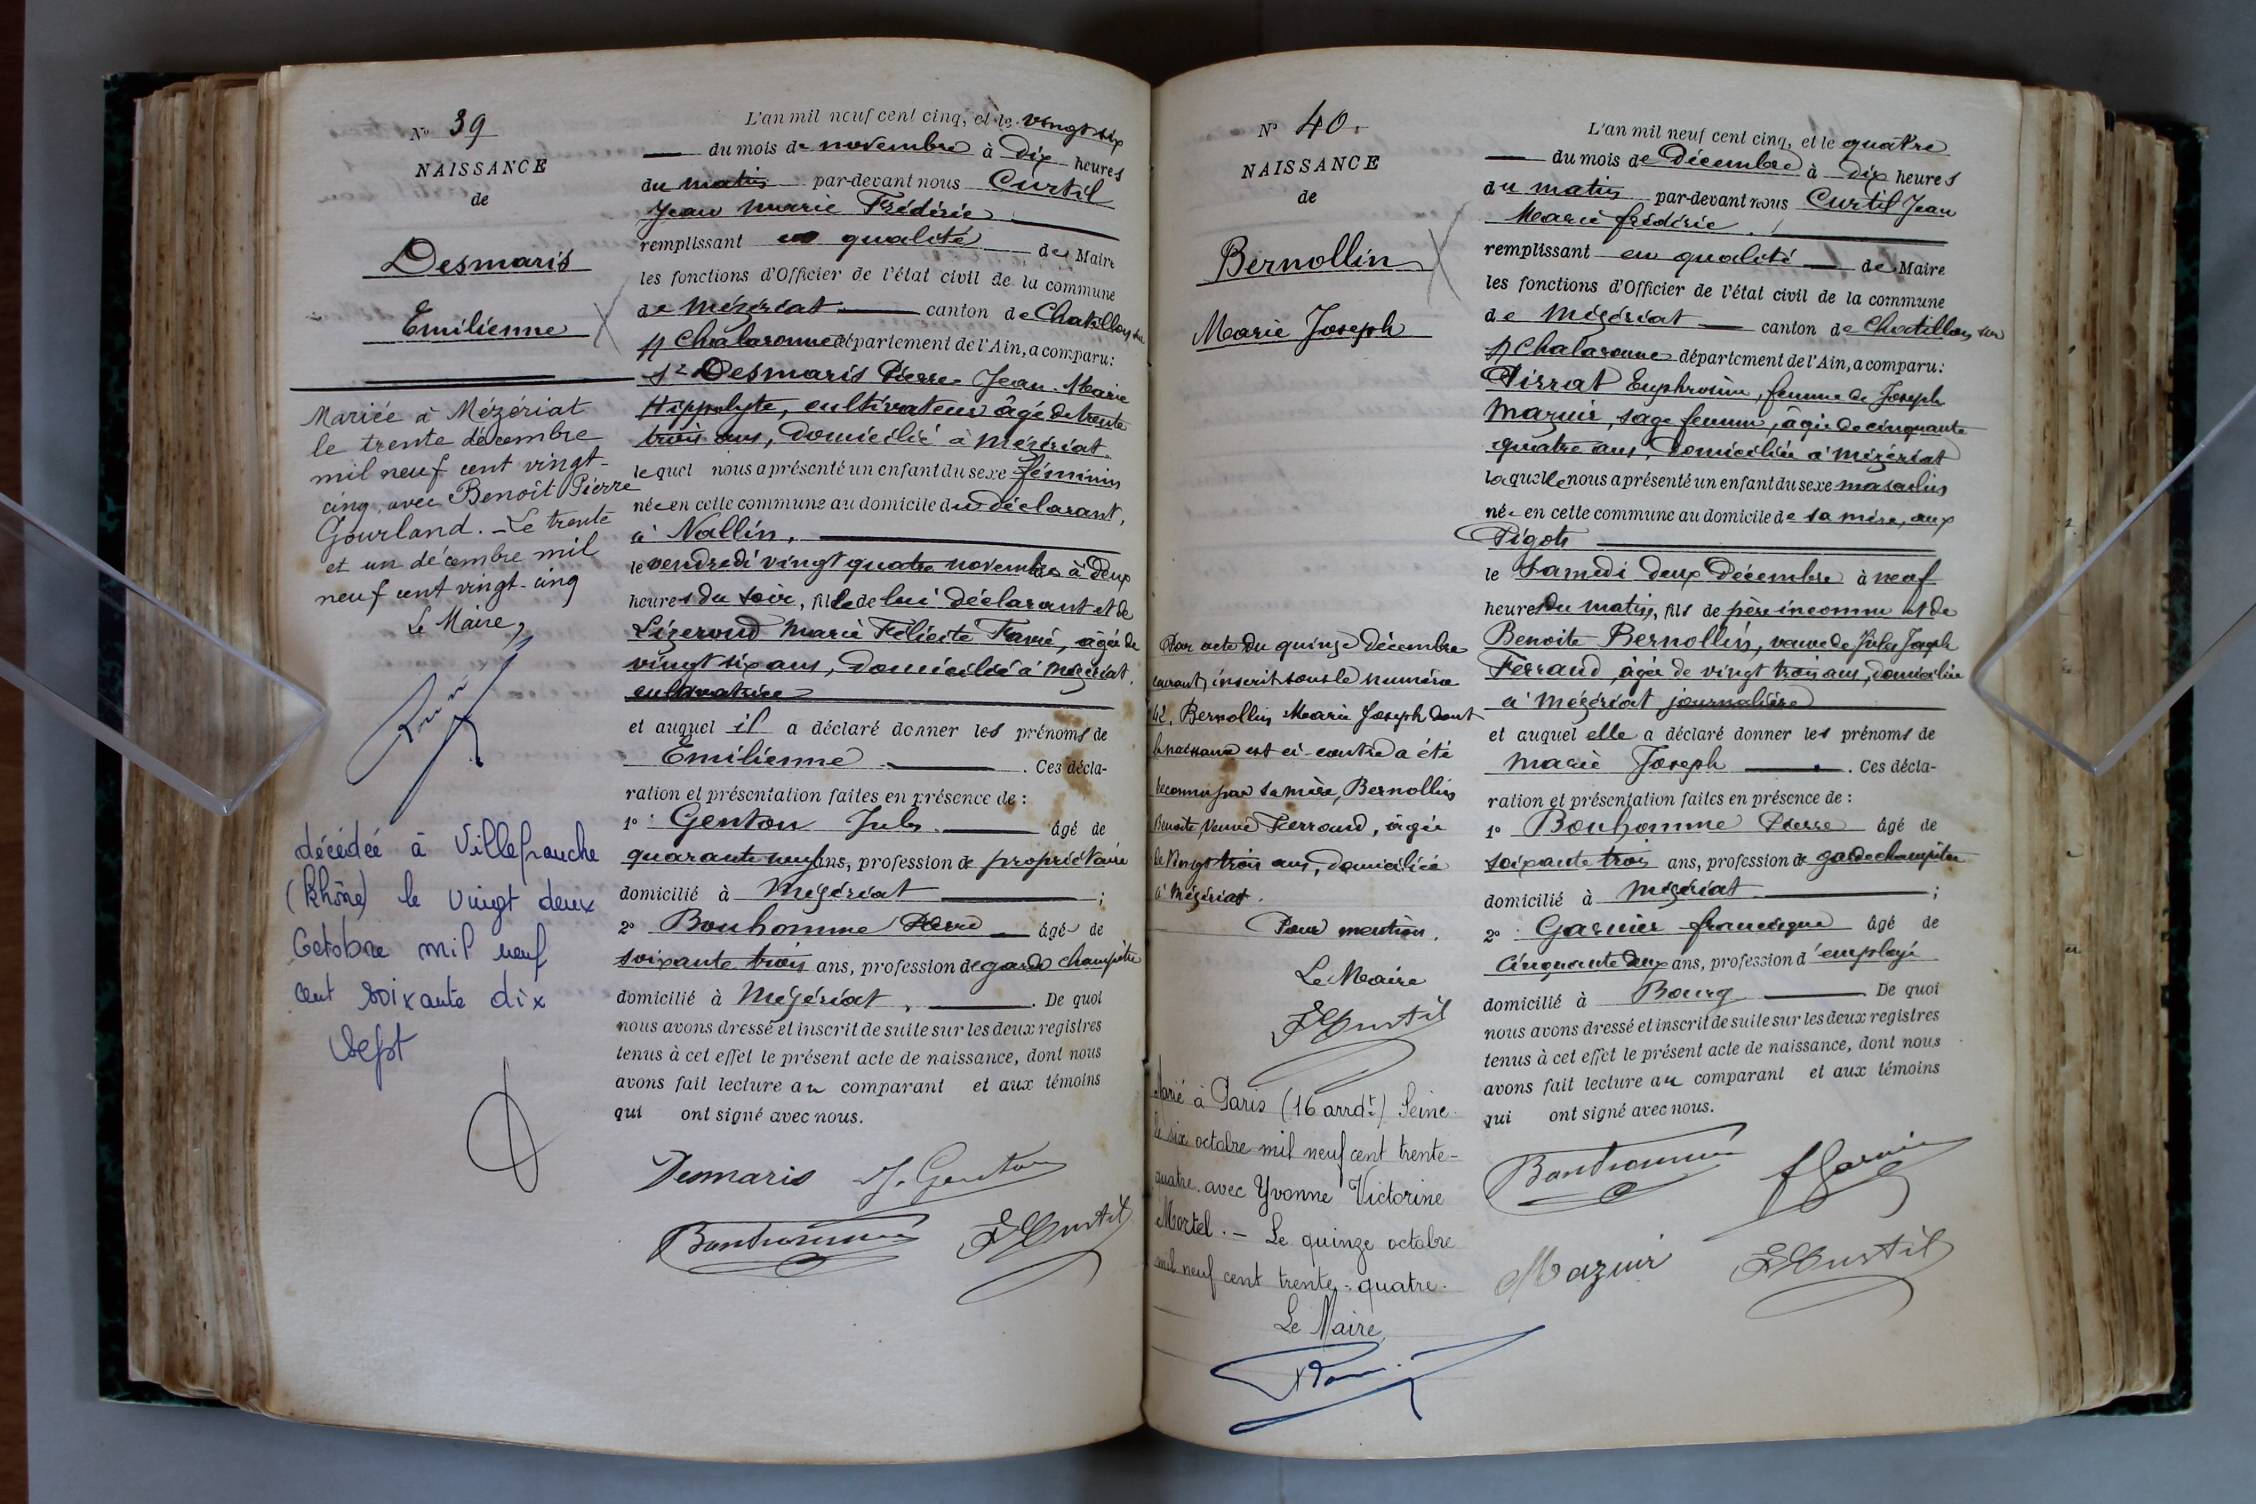 N° 39
NAISSANCE
de
Desmaris
Emilienne
Mariée à Mézériat
le trente décembre
mil neuf cent vingt-
cinq, avec Benoît Pierre
Gourland. - Le trente
et un décembre mil
neuf cent vingt-cinq
Le Maire,
décédée à Villefranche
(Rhône) le vingt deux
Octobre mil neuf
cent soixante dix
Sept
L'an mil neuf cent cinq, et le vingt six
du mois de novembre à Dix heures
du matin par-devant nous Curtil
Jean Marie Frédéric
remplissant en qualité de Maire
les fonctions d'Officier de l'état civil de la commune
de Mézériat canton de Chatillon sur
Chalaronne département de l'Ain, a comparu:
Desmaris Pierre Jean Marie
Hippolyte, cultivateur âgé de trente
trois ans, Domicilié à Mézériat
lequel nous a présenté un enfant du sexe féminin
née en cette commune au domicile du déclarant,
à Nallin,
le vendredi vingt quatre novembre à deux
heures du soir, fille de lui déclarant et de
Lizeroud Marie Félicité Favié, âgée de
vingt six ans, Domiciliée à Mézériat,
cultivatrice
et auquel il a déclaré donner les prénoms de
Emilienne . Ces décla-
ration et présentation faites en présence de :
1° Genton Jules âgé de
quarante neuf ans, profession de propriétaire
domicilié à Mézériat ;
2° Bonhomme Pierre âgé de
soixante trois ans, profession de garde champêtre
domicilié à Mézériat, . De quoi
nous avons dressé et inscrit de suite sur les deux registres
tenus à cet effet le présent acte de naissance, dont nous
avons fait lecture au comparant et aux témoins
qui ont signé avec nous.
Desmaris J. Genton
Bonhomme F Curtil
N° 40.
NAISSANCE
de
Bernollin
Marie Joseph
Par acte du quinze décembre
courant, inscrit sous le numéro
42, Bernollin Marie Joseph dont
la naissance est ci-contre a été
reconnu par sa mère, Bernollin
Benoite, veuve Ferraud, âgée
de vingt trois ans, domiciliée
à Mézériat.
Pour mention.
Le Maire
F Curtil
Marié à Paris (16 arrdt) Seine
le six octobre mil neuf cent trente-
quatre avec Yvonne Victorine
Mortel. - Le quinze octobre
mil neuf cent trente-quatre.
Le Maire,
L'an mil neuf cent cinq, et le quatre
du mois de Décembre à dix heures
du matin par-devant nous Curtil Jean
Marie frédéric.
remplissant en qualité de Maire
les fonctions d'Officier de l'état civil de la commune
de Mézériat canton de Chatillon sur
Chalaronne département de l'Ain, a comparu:
Pirrat Euphrosine, femme de Joseph
Mazuir, sage femme, âgée de cinquante
quatre ans, Domiciliée à Mézériat
laquelle nous a présenté un enfant du sexe masculin
né en cette commune au domicile de sa mère, aux
Pigots
le Samedi deux Décembre à neuf
heures du matin, fils de père inconnu et de
Benoite Bernollin, veuve de Jules Joseph
Ferraud âgée de vingt trois ans, domiciliée
à Mézériat journalière
et auquel elle a déclaré donner les prénoms de
Marie Joseph . Ces décla-
ration et présentation faites en présence de :
1° Bonhomme Pierre âgé de
soixante trois ans, profession de garde champêtre
domicilié à Mézériat ;
2° Garnier francisque âgé de
cinquante deux ans, profession d'employé
domicilié à Bourg De quoi
nous avons dressé et inscrit de suite sur les deux registres
tenus à cet effet le présent acte de naissance, dont nous
avons fait lecture au comparant et aux témoins
qui ont signé avec nous.
Bonhomme f Garnier
Mazuir F Curtil